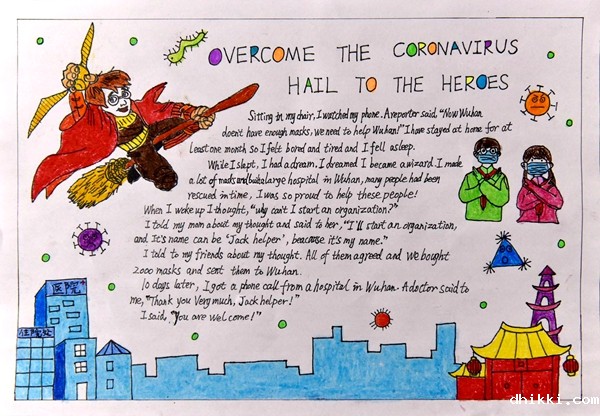 OVERCOME THE CORONAVIRUS
HAIL TO THE HEROES
Sitting in my chair, I watched my phone. A reporter said, "Now Wuhan
doesn't have enough masks, we need to help Wuhan!" I have stayed at home for at
least one month so I felt bored and tired and I fell asleep.
While I slept, I had a dream. I dreamed I became a wizard. I made
a lot of masks and built a large hospital in Wuhan, many people had been
rescued in time, I was so proud to help these people!
When I woke up I thought, "why can't I start an organization?"
I told my mom about my thought and said to her, "I'll start an organization,
and It's name can be 'Jack helper', beacause it's my name."
I told to my friends about my thought. All of them agreed and We bought
2000 masks and sent them to Wuhan.
10 days later, I got a phone call from a hospital in Wuhan. A doctor said to
me, "Thank you Very much, Jack helper!"
I said, "You are welcome!"
医院+
住院处
dhikki.com